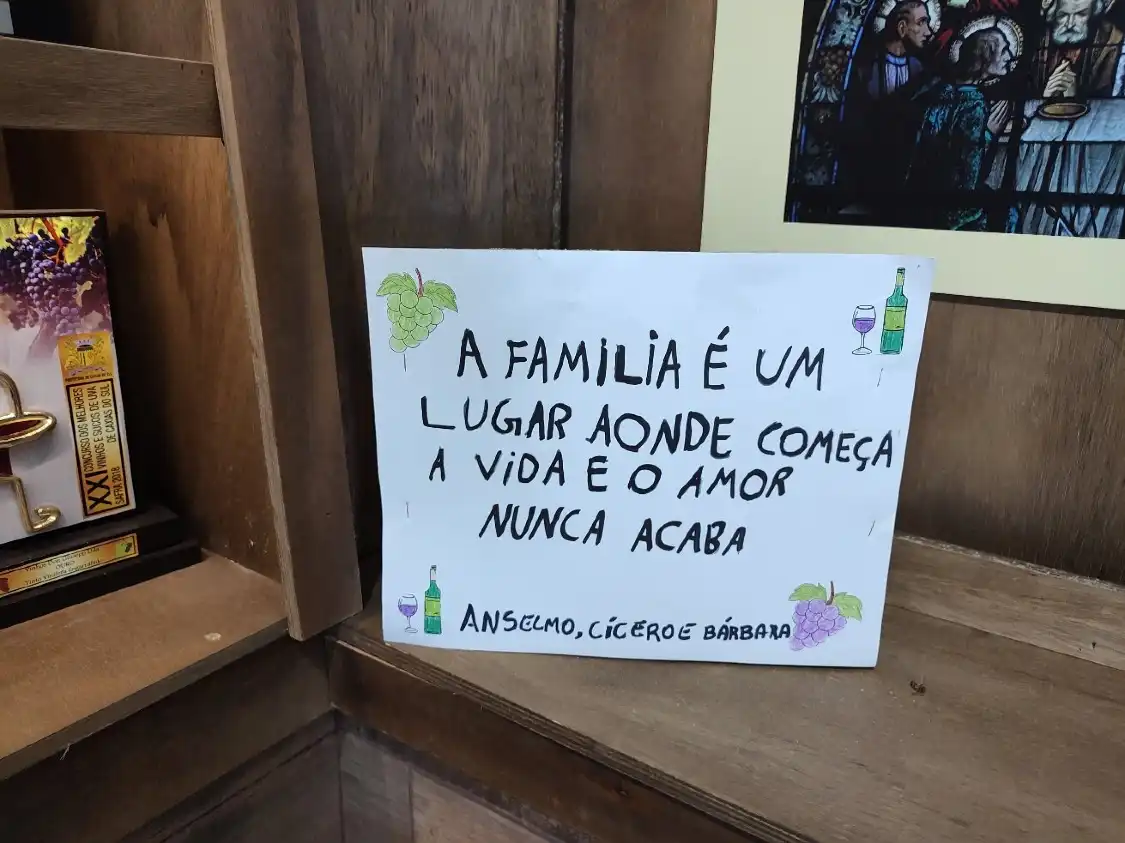 A FAMILIA É UM
LUGAR AONDE COMEÇA
A VIDA E O AMOR
NUNCA ACABA
ANSELMO, CÍCERO E BÁRBARA
XXI CONCURSO DOS MELHORES
VINHOS E SUCOS DE UVA
DE CAXIAS DO SUL
SAFRA 2018
OURO